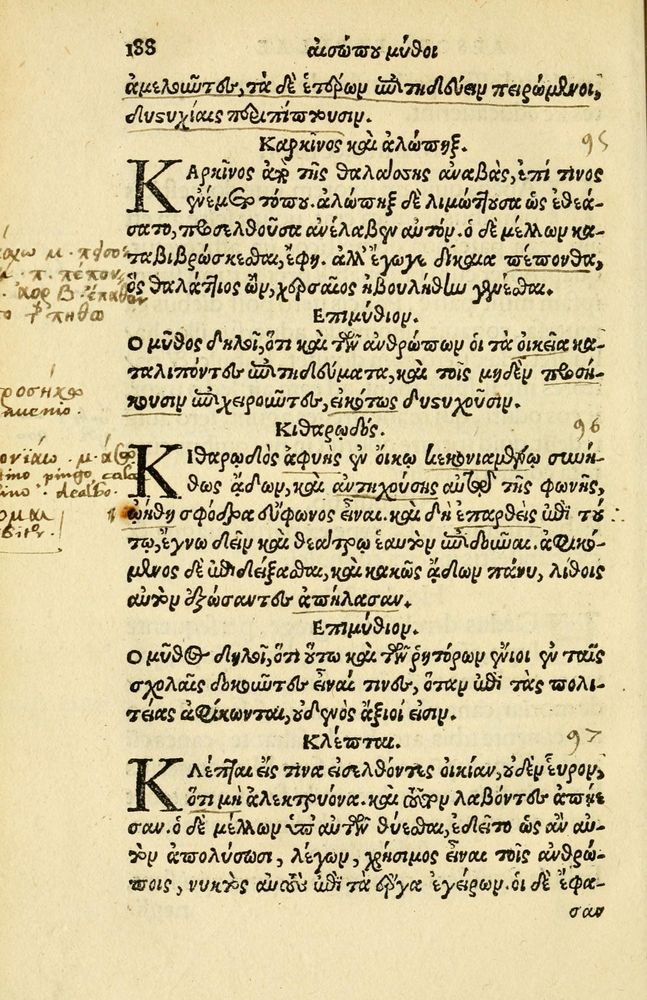 188 αἰσώπου μῦθοι
ἀμελοῦντες, τὰ δὲ ἑτέρων ἐπιτηδεύειν πειρώμενοι,
δυςυχίαις περιπίπτουσιν.
Καρκῖνος καὶ ἀλώπηξ. 95
ΚΑρκῖνος ἀπὸ τῆς θαλάσσης ἀναβὰς, ἐπί τινος
ἐνέμετο τόπου. ἀλώπηξ δὲ λιμώττουσα ὡς ἐθεά-
σατο, προσελθοῦσα ἀνέλαβεν αὐτόν. ὁ δὲ μέλλων κα-
ταβιβρώσκεσθαι, ἔφη. ἀλλ' ἔγωγε δίκαια πέπονθα,
ὃς θαλάττιος ὢν, χερσαῖος ἠβουλήθην γενέσθαι.
Επιμύθιον.
Ο μῦθος δηλοῖ, ὅτι καὶ τῶν ἀνθρώπων οἱ τὰ οἰκεῖα κα-
ταλιπόντες ἐπιτηδεύματα, καὶ τοῖς μηδὲν προσή-
κουσιν ἐπιχειροῦντες, εἰκότως δυςυχοῦσιν.
Κιθαρῳδός. 96
ΚΙθαρῳδὸς ἀφυὴς ἐν οἴκῳ κεκονιαμένῳ συνή-
θως ᾄδων, καὶ ἀντηχούσης αὐτῷ τῆς φωνῆς,
ᾠήθη σφόδρα εὔφωνος εἶναι. καὶ δὴ ἐπαρθεὶς ἐπὶ τού
τῳ, ἔγνω δεῖν καὶ θεάτρῳ ἑαυτὸν ἐπιδοῦναι. ἀφικό-
μενος δὲ ἐπιδείξασθαι, καὶ κακῶς ᾄδων πάνυ, λίθοις
αὐτὸν ἐξώσαντες ἀπήλασαν.
Επιμύθιον.
Ο μῦθος δηλοῖ, ὅτι οὕτω καὶ τῶν ῥητόρων ἔνιοι ἐν ταῖς
σχολαῖς δοκοῦντες εἶναί τινες, ὅταν ἐπὶ τὰς πολι-
τείας ἀφίκωνται, οὐδενὸς ἄξιοί εἰσιν.
Κλέπται. 97
ΚΛέπται εἴς τινα εἰσελθόντες οἰκίαν, οὐδὲν εὗρον,
ὅτι μὴ ἀλεκτρυόνα. καὶ τοῦτον λαβόντες ἀπῄε
σαν. ὁ δὲ μέλλων ὑπ' αὐτῶν θύεσθαι, ἐδεῖτο ὡς ἂν αὐ-
τὸν ἀπολύσωσι, λέγων, χρήσιμος εἶναι τοῖς ἀνθρώ-
ποις, νυκτὸς αὐτοὺς ἐπὶ τὰ ἔργα ἐγείρων. οἱ δὲ ἔφα-
σαν